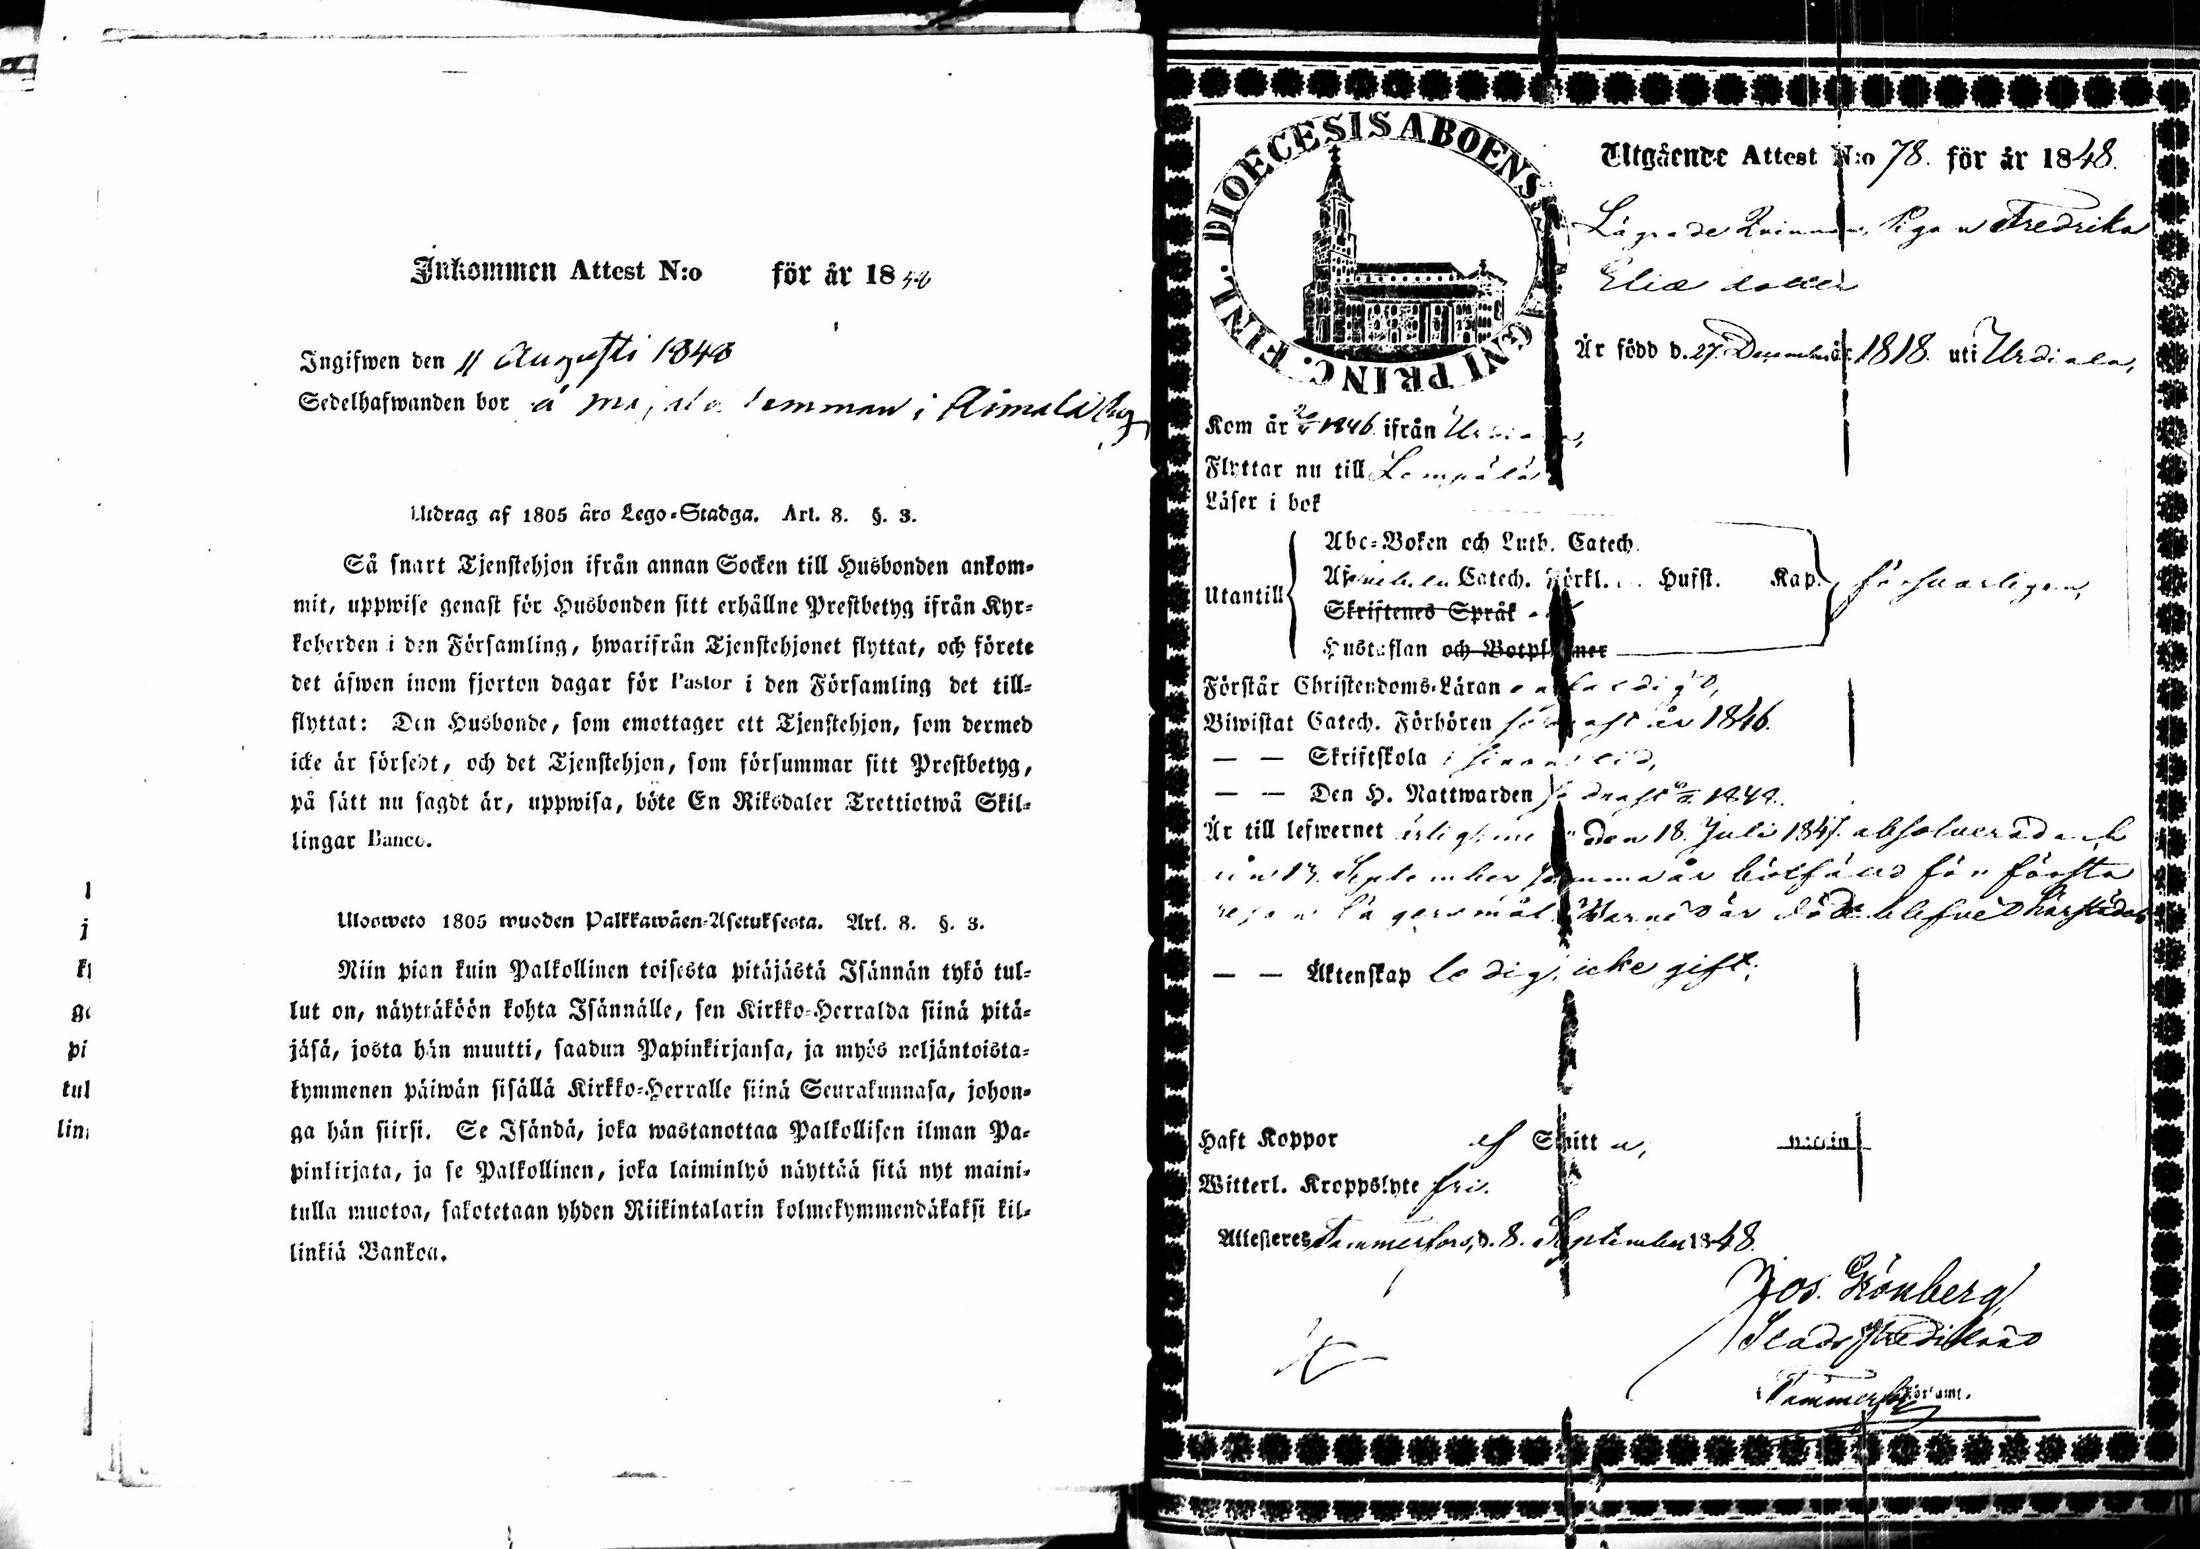 Inkommen Attest N:o för år 1848
Ingifwen den 11 Augusti 1848
Sedelhafwanden bor å i Aimala by
Utdrag af 1805 års Lego-Stadga. Art. 8. §. 3.
Så snart Tjenstehjon ifrån annan Socken till Husbonden ankom-
mit, uppwise genast för Husbonden sitt erhållne Prestbetyg ifrån Kyr-
koherden i den Församling, hwarifrån Tjenstehjonet flyttat, och förete
det äfwen inom fjorton dagar för Pastor i den Församling det till-
flyttat: Den Husbonde, som emottager ett Tjenstehjon, som dermed
icke är försedt, och det Tjenstehjon, som försummar sitt Prestbetyg,
på sätt nu sagdt är, uppwisa, böte En Riksdaler Trettiotwå Skil-
lingar Banco.
Ulosweto 1805 wuoden Palkkawäen-Asetuksesta. Art. 8. §. 3.
Niin pian kuin Palkollinen toisesta pitäjästä Isännän tykö tul-
lut on, näyttäköön kohta Isännälle, sen Kirkko-Herralda siinä pitä-
jäsä, josta hän muutti, saadun Papinkirjansa, ja myös neljäntoista-
kymmenen päiwän sisällä Kirkko-Herralle siinä Seurakunnasa, johon-
ga hän siirsi. Se Isändä, joka wastanottaa Palkollisen ilman Pa-
pinkirjata, ja se Palkollinen, joka laiminlyö näyttää sitä nyt maini-
tulla muotoa, sakotetaan yhden Riikintalarin kolmekymmendäkaksi kil-
linkiä Bankoa.
DIOECESIS ABOENSIS MAGNI PRINC. FINL.
Utgående Attest N:o 78. för år 1848.
Lägrade Qvinnan Pigan Fredrika
Eliæ dotter
Är född d. 27 December år 1818. uti Urdiala,
Kom år 1846. ifrån Urdiala,
Flyttar nu till Lempälä
Läser i bok
Utantill
Abc-Boken och Luth. Catech.
Catech. Förkl. Hust. Kap. försvarligen,
Skriftenes Språk
Hustaflan och Botpsalmer
Förstår Christendoms-Läran
Biwistat Catech. Förhören sednast år 1846.
— — Skriftskola i sinom tid,
— — Den H. Nattwarden sednast 1848.
Är till lefwernet ärlig, men den 18. Juli 1847. absolverad och
den 13. September samma år bötfäld för första
resan lägersmål. Barnet är dödt blefvet
— — Äktenskap ledig, icke gift.
Haft Koppor ej Smittan,
Witterl. Kroppslyte fri.
Attesteres Tammerfors, d. 8. September 1848.
Jos. Grönberg
Stads Predikand
i Tammerfors Församl.